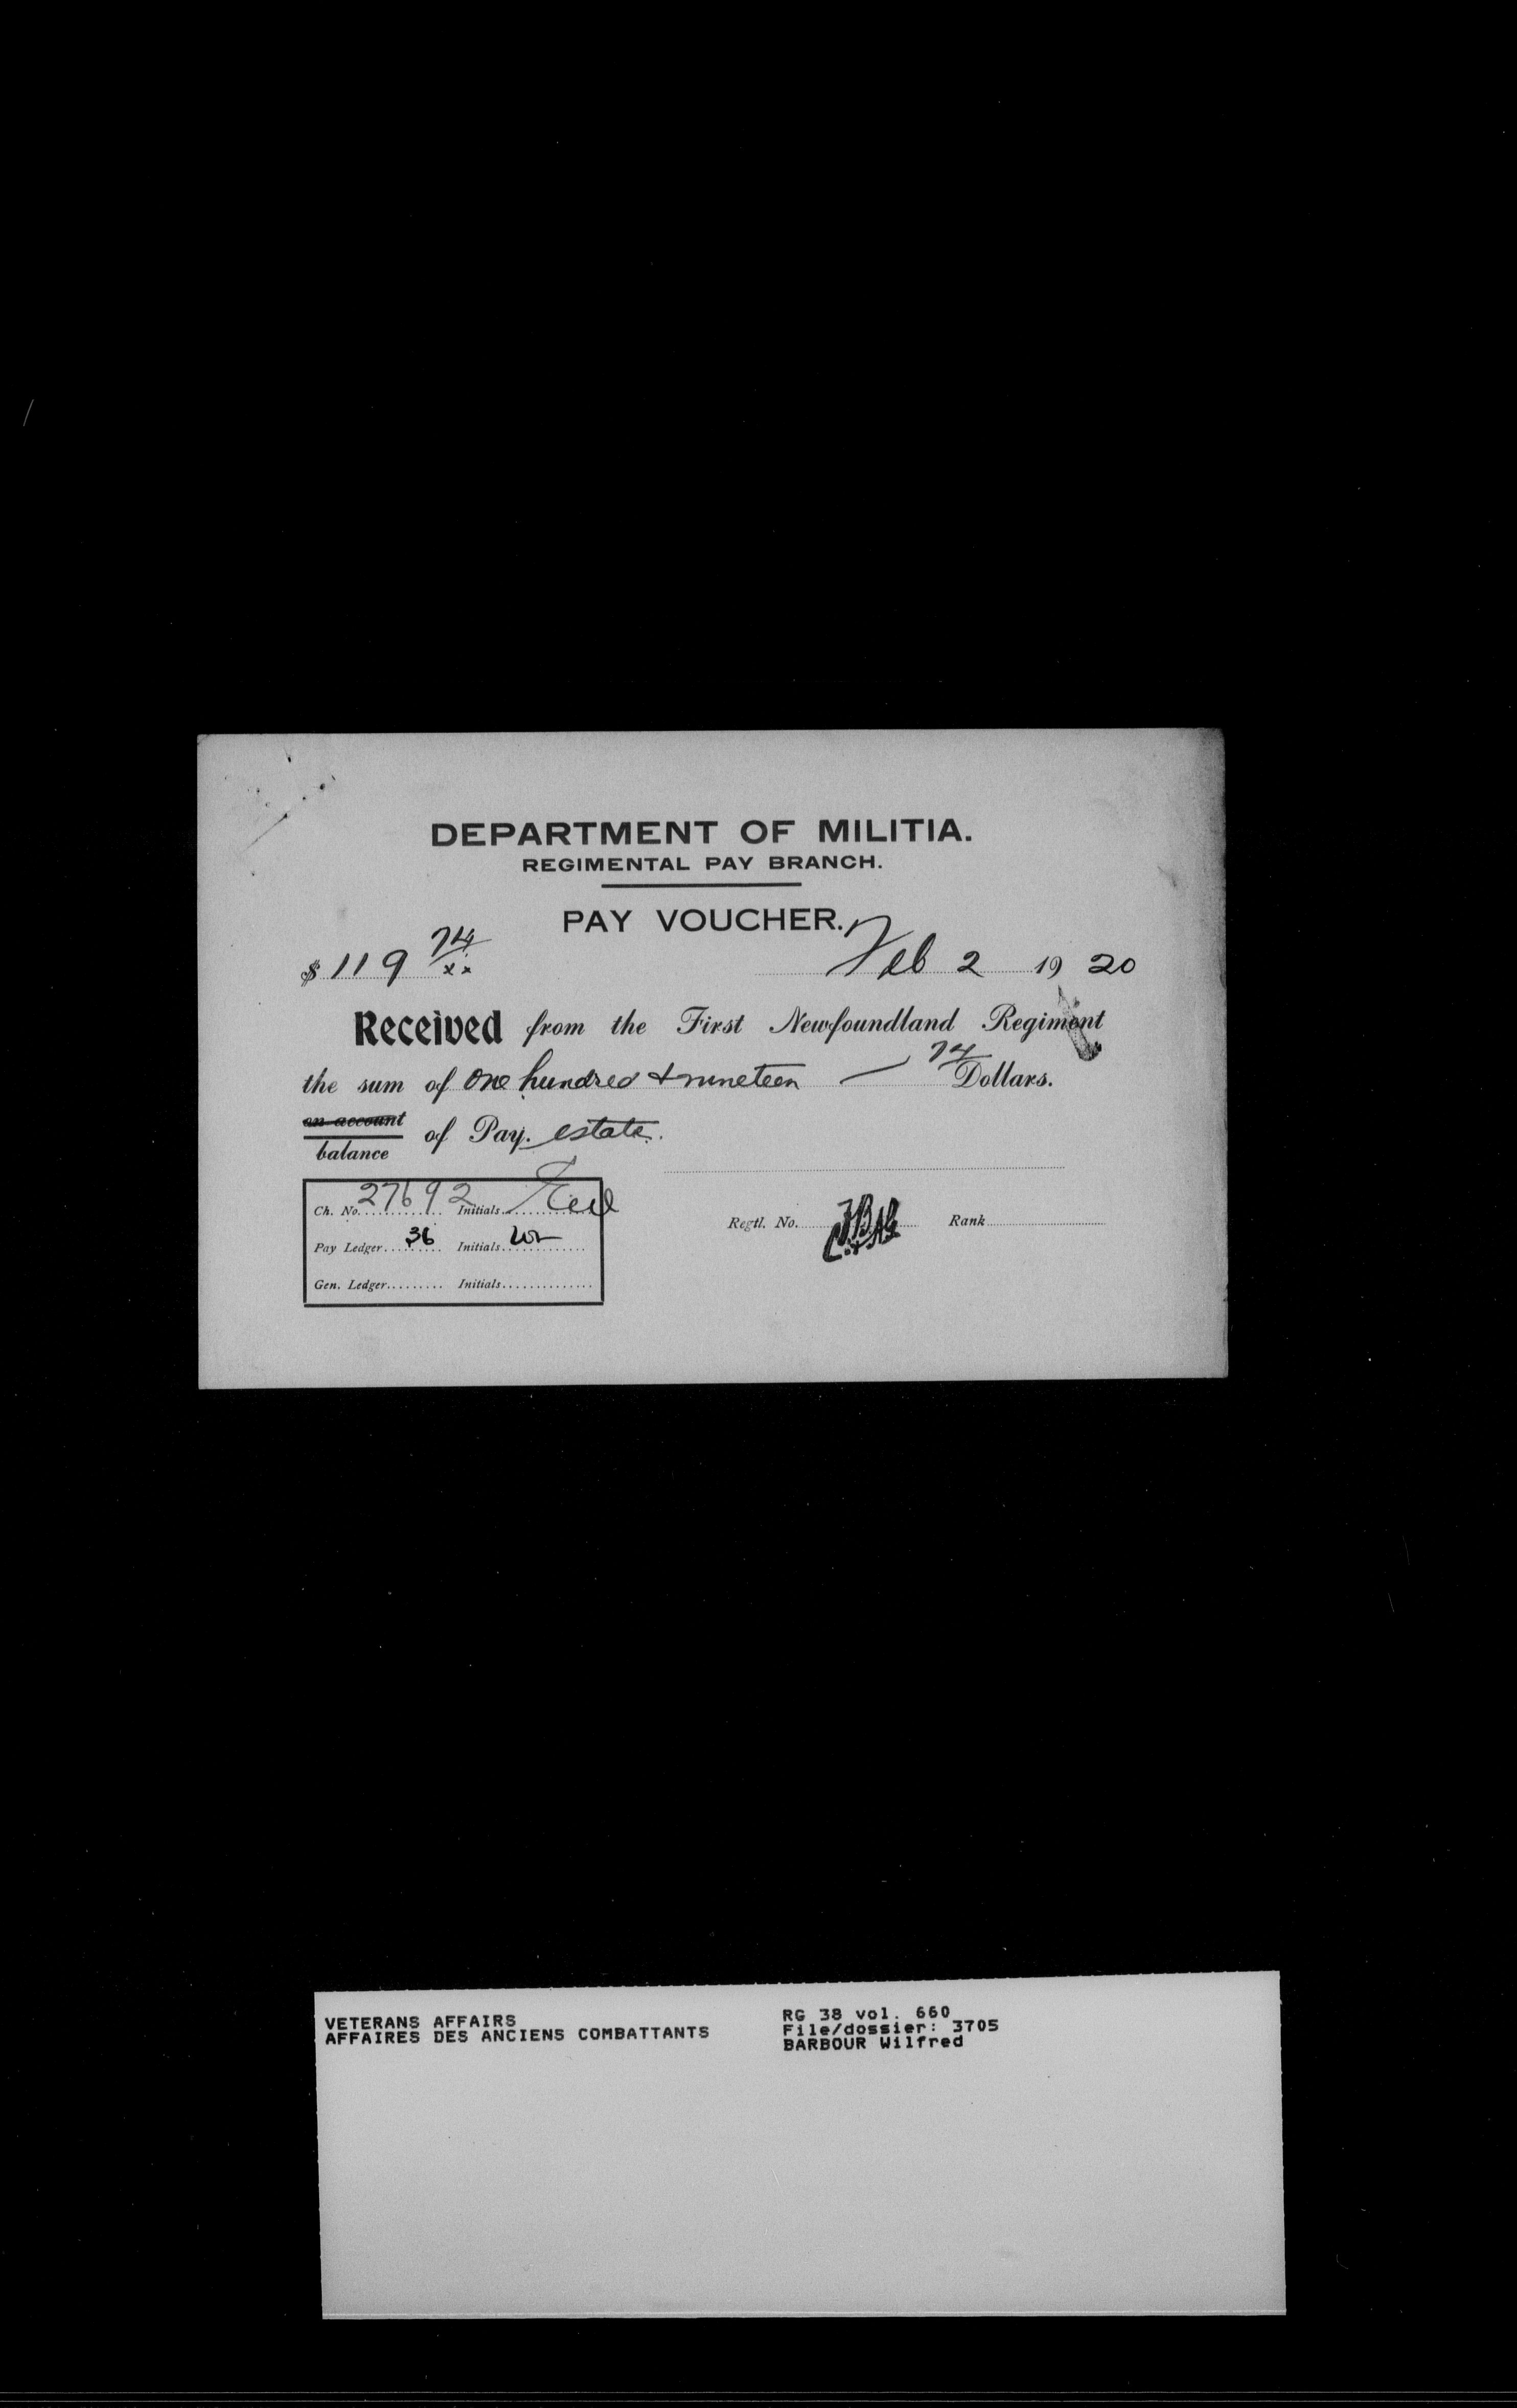 DEPARTMENT OF MILITIA.
REGIMENTAL PAY BRANCH.
PAY VOUCHER.
$ 119 74/xx Feb 2 1920
Received from the First Newfoundland Regiment
the sum of One hundred & nineteen — 74 Dollars.
on account
balance of Pay. estate.
Ch. No. 27692 Initials
Regtl. No. Rank
Pay Ledger 36 Initials
Gen. Ledger Initials
VETERANS AFFAIRS
AFFAIRES DES ANCIENS COMBATTANTS
RG 38 vol. 660
File/dossier: 3705
BARBOUR Wilfred